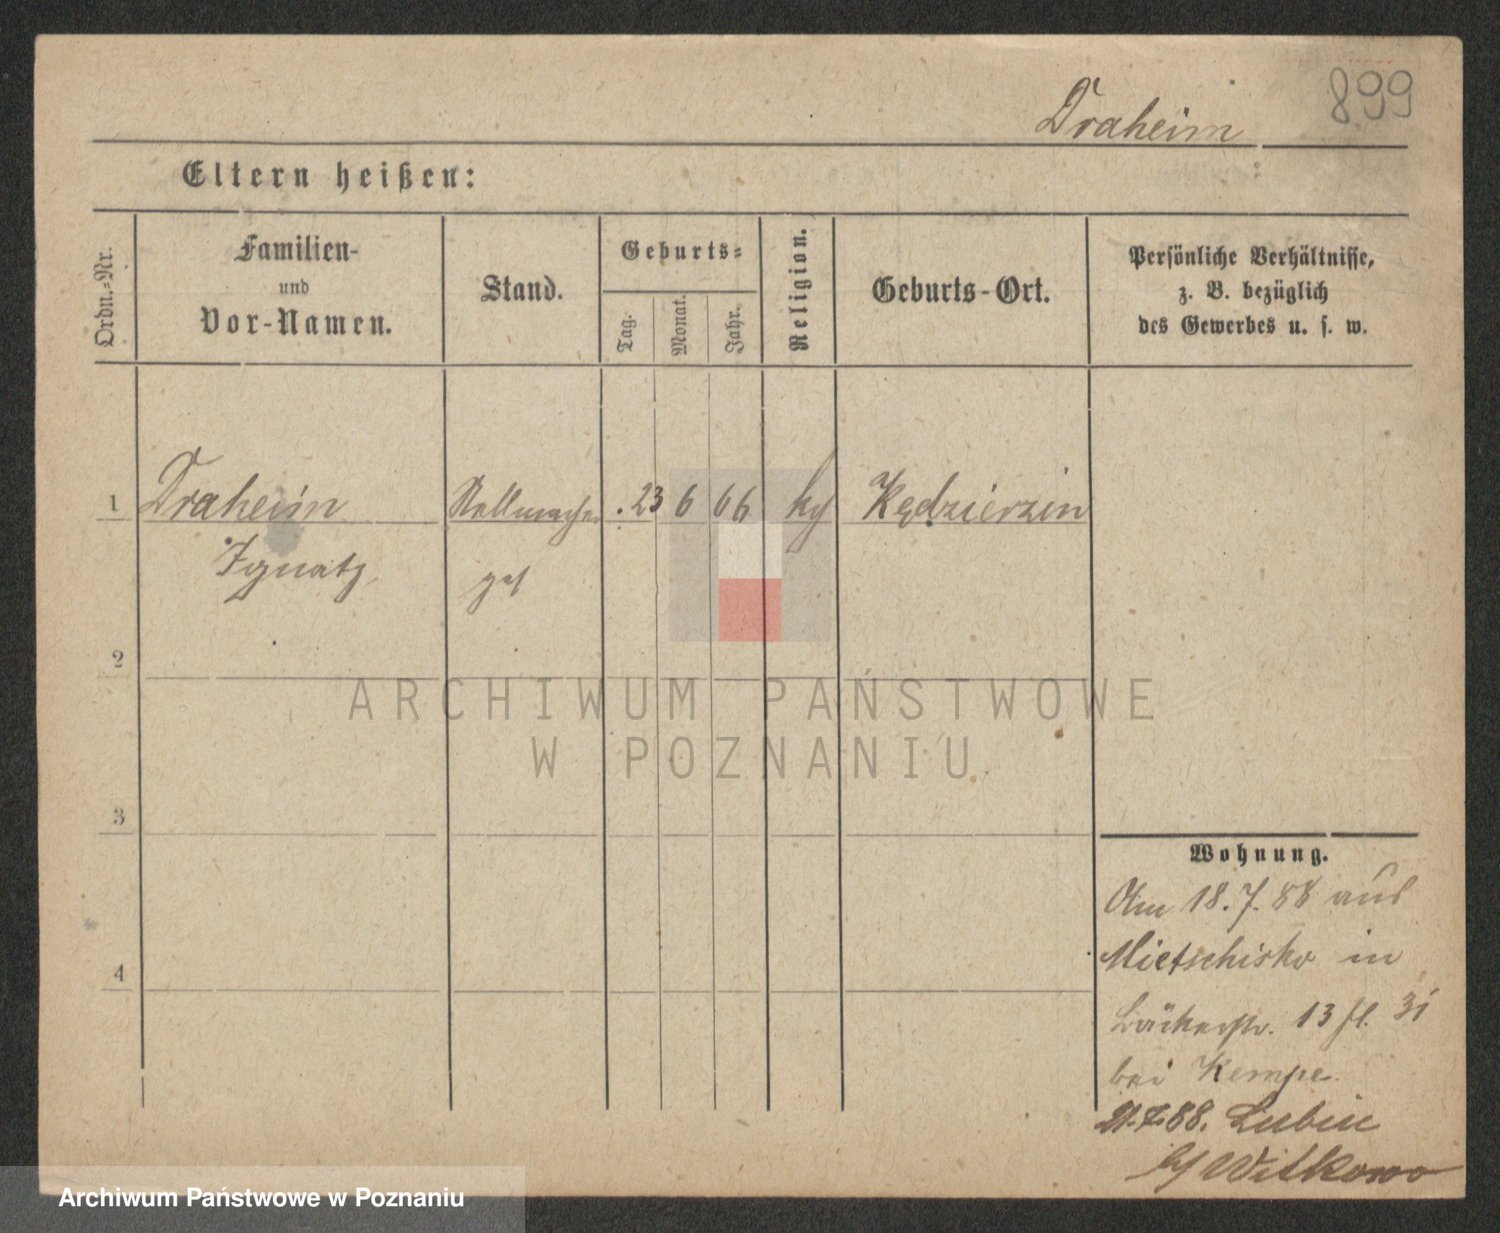 899
Draheim
Eltern heißen:
Ordn.-Nr.
Familien-
und
Vor-Namen.
Stand.
Geburts-
Tag.
Monat.
Jahr.
Religion.
Geburts-Ort.
Persönliche Verhältnisse,
z. B. bezüglich
des Gewerbes u. s. w.
1 Draheim Stellmacher 23 6 66 Kędzierzin
Ignatz
2
3
4
Wohnung.
Am 18.7.88 aus
Mietschisko in
Bäckerstr. 13
bei Kempe.
21.7.88. Lubin
b/ Witkowo
ARCHIWUM PAŃSTWOWE
W POZNANIU
Archiwum Państwowe w Poznaniu